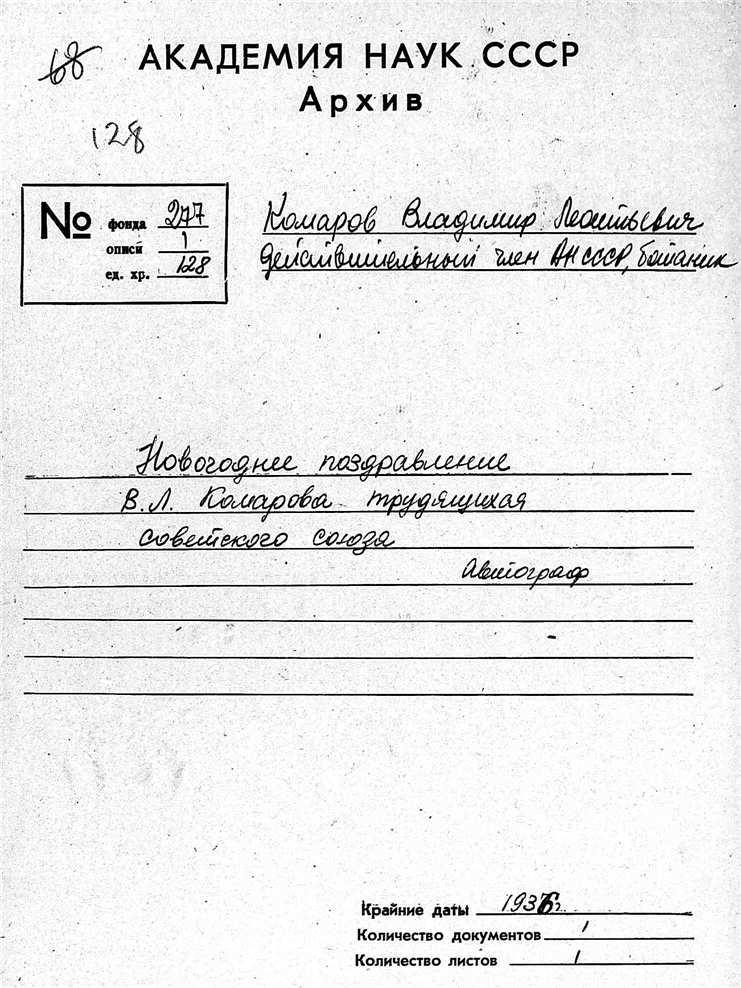 68
АКАДЕМИЯ НАУК СССР
Архив
128
№ фонда 277
описи 1
ед. хр. 128
Комаров Владимир Леонтьевич
действительный член АН СССР, ботаник
Новогоднее поздравление
В.Л. Комарова трудящихая
советского союза
Автограф
Крайние даты 1936г.
Количество документов 1
Количество листов 1